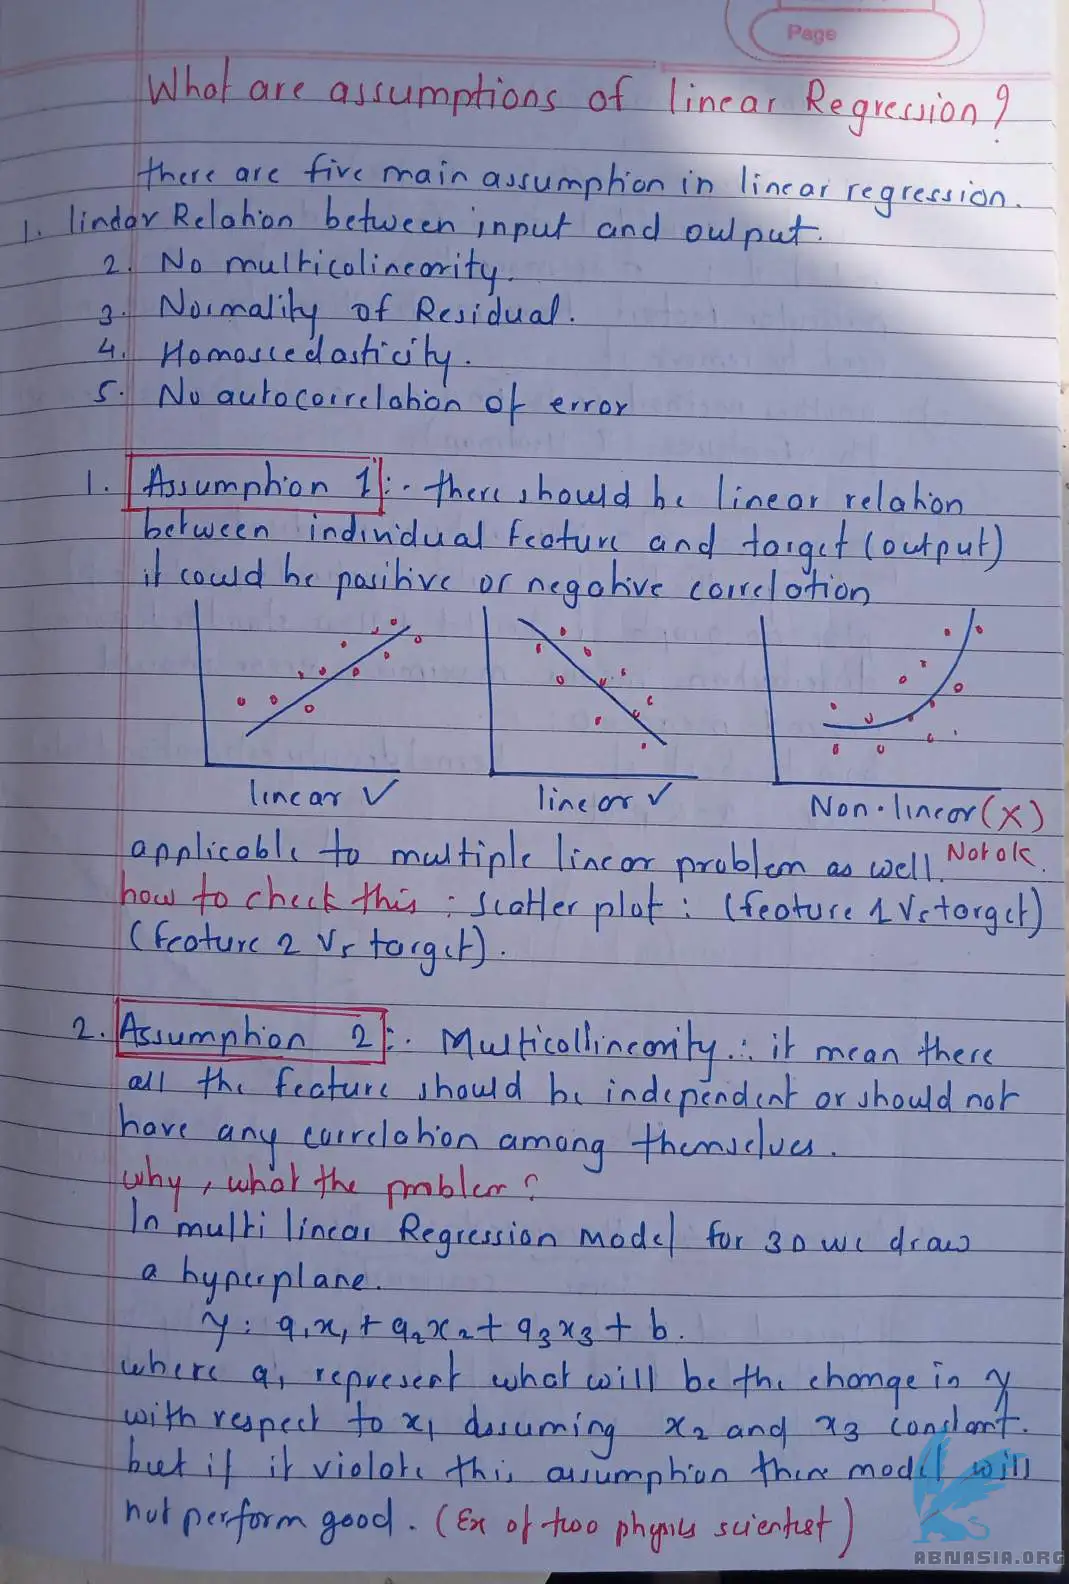 Page
What are assumptions of linear Regression?
there are five main assumption in linear regression.
1. linear Relation between input and output.
2. No multicolinearity.
3. Normality of Residual.
4. Homoscedasticity.
5. No autocorrelation of error
1. Assumption 1 :- there should be linear relation
between individual feature and target (output)
it could be positive or negative correlation
linear ✓ linear ✓ Non-linear (X)
applicable to multiple linear problem as well. Not ok.
how to check this : scatter plot : (feature 1 Vs target)
(feature 2 Vs target).
2. Assumption 2 :- Multicollinearity :- it mean there
all the feature should be independent or should not
have any correlation among themselves.
why, what the problem?
In multi linear Regression model for 3D we draw
a hyperplane.
y = a₁x₁ + a₂x₂ + a₃x₃ + b.
where a₁ represent what will be the change in y
with respect to x₁ assuming x₂ and x₃ constant.
but if it violate this assumption there model will
not perform good. (Ex of two physics scientist)
ABNASIA.ORG